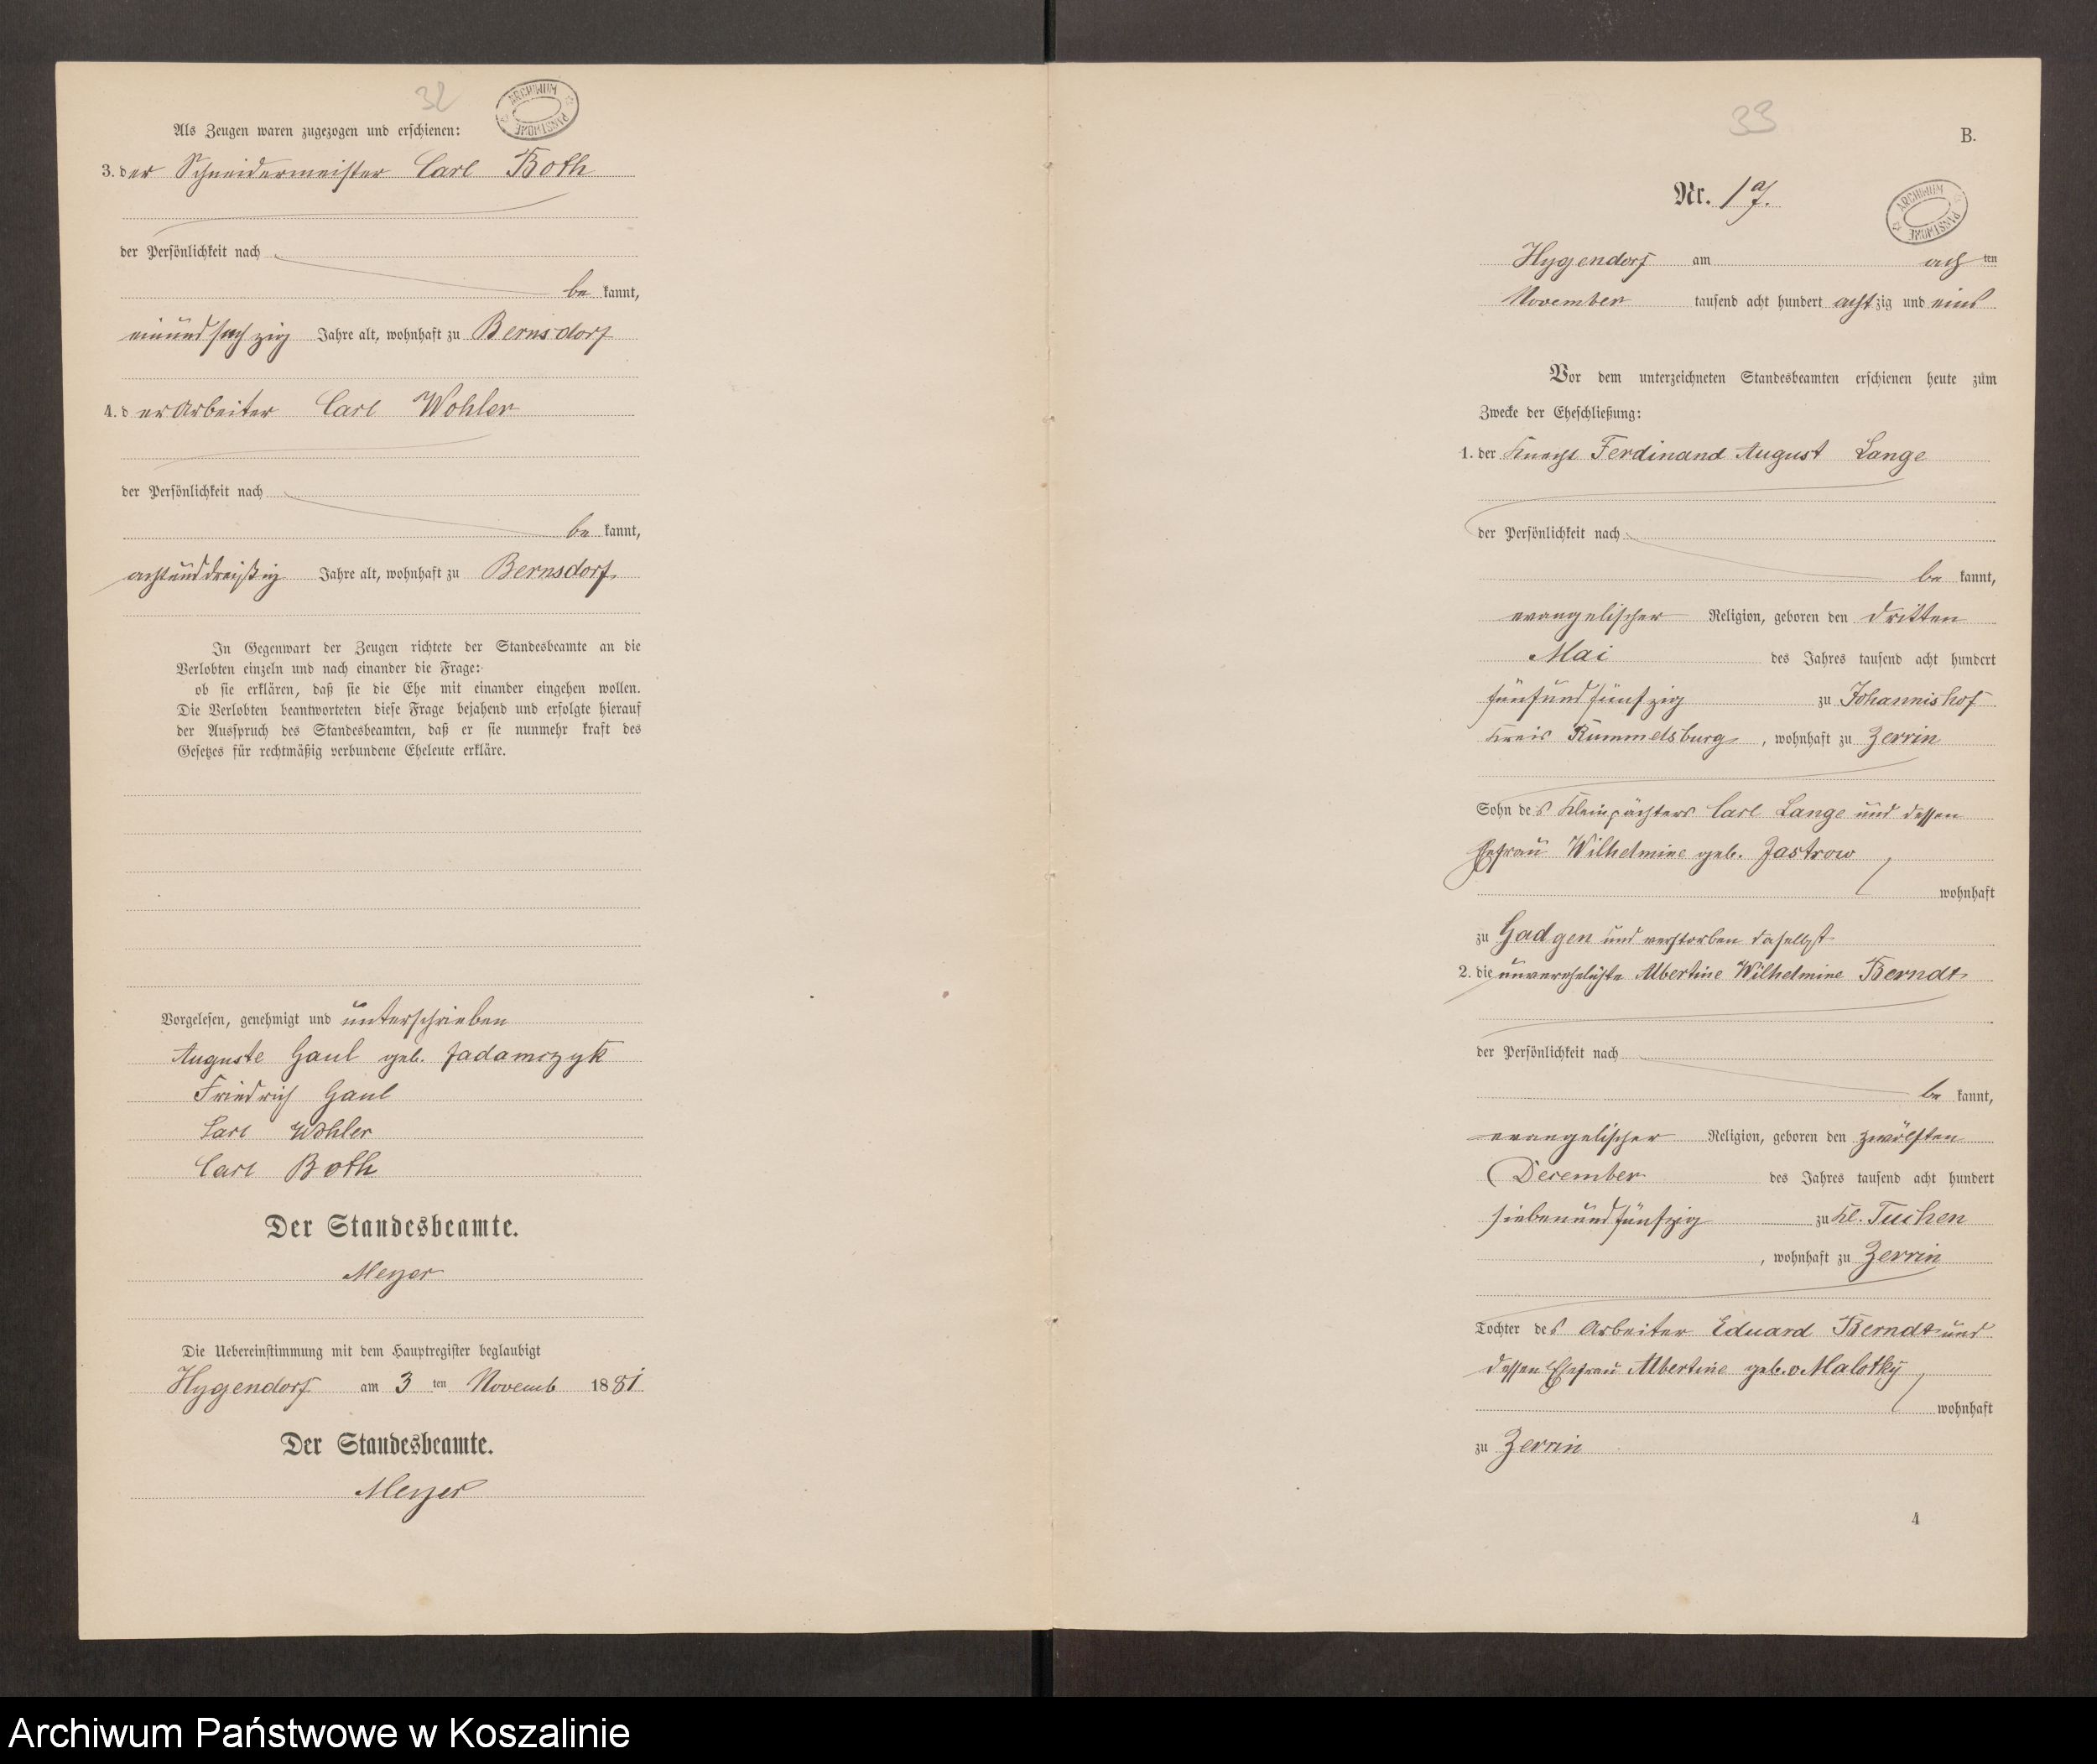 32
ARCHIWUM PAŃSTWOWE
Als Zeugen waren zugezogen und erschienen:
3. der Schneidermeister Carl Both
der Persönlichkeit nach
be kannt,
einundsechzig Jahre alt, wohnhaft zu Bernsdorf
4. der Arbeiter Carl Wohler
der Persönlichkeit nach
be kannt,
achtunddreißig Jahre alt, wohnhaft zu Bernsdorf
In Gegenwart der Zeugen richtete der Standesbeamte an die
Verlobten einzeln und nach einander die Frage:
ob sie erklären, daß sie die Ehe mit einander eingehen wollen.
Die Verlobten beantworteten diese Frage bejahend und erfolgte hierauf
der Ausspruch des Standesbeamten, daß er sie nunmehr kraft des
Gesetzes für rechtmäßig verbundene Eheleute erkläre.
Vorgelesen, genehmigt und unterschrieben
Auguste Gaul geb. Jadamczyk
Friedrich Gaul
Carl Wohler
Carl Both
Der Standesbeamte.
Meyer
Die Uebereinstimmung mit dem Hauptregister beglaubigt
Hygendorf am 3 ten Novemb 1881
Der Standesbeamte.
Meyer
33
B.
Nr. 17.
ARCHIWUM PAŃSTWOWE
Hygendorf am achten
November tausend acht hundert achtzig und eins
Vor dem unterzeichneten Standesbeamten erschienen heute zum
Zwecke der Eheschließung:
1. der Knecht Ferdinand August Lange
der Persönlichkeit nach
be kannt,
evangelischer Religion, geboren den dritten
Mai des Jahres tausend acht hundert
fünfundfünfzig zu Johannishof
Kreis Rummelsburg, wohnhaft zu Zerrin
Sohn des Kleinpächters Carl Lange und dessen
Ehefrau Wilhelmine geb. Jastrow
wohnhaft
zu Gadgen und verstorben daselbst
2. die unverehelichte Albertine Wilhelmine Berndt
der Persönlichkeit nach
be kannt,
evangelischer Religion, geboren den zwölften
December des Jahres tausend acht hundert
siebenundfünfzig zu Kl. Tuchen
, wohnhaft zu Zerrin
Tochter des Arbeiter Eduard Berndt und
dessen Ehefrau Albertine geb. v Malotky
wohnhaft
zu Zerrin
4
Archiwum Państwowe w Koszalinie